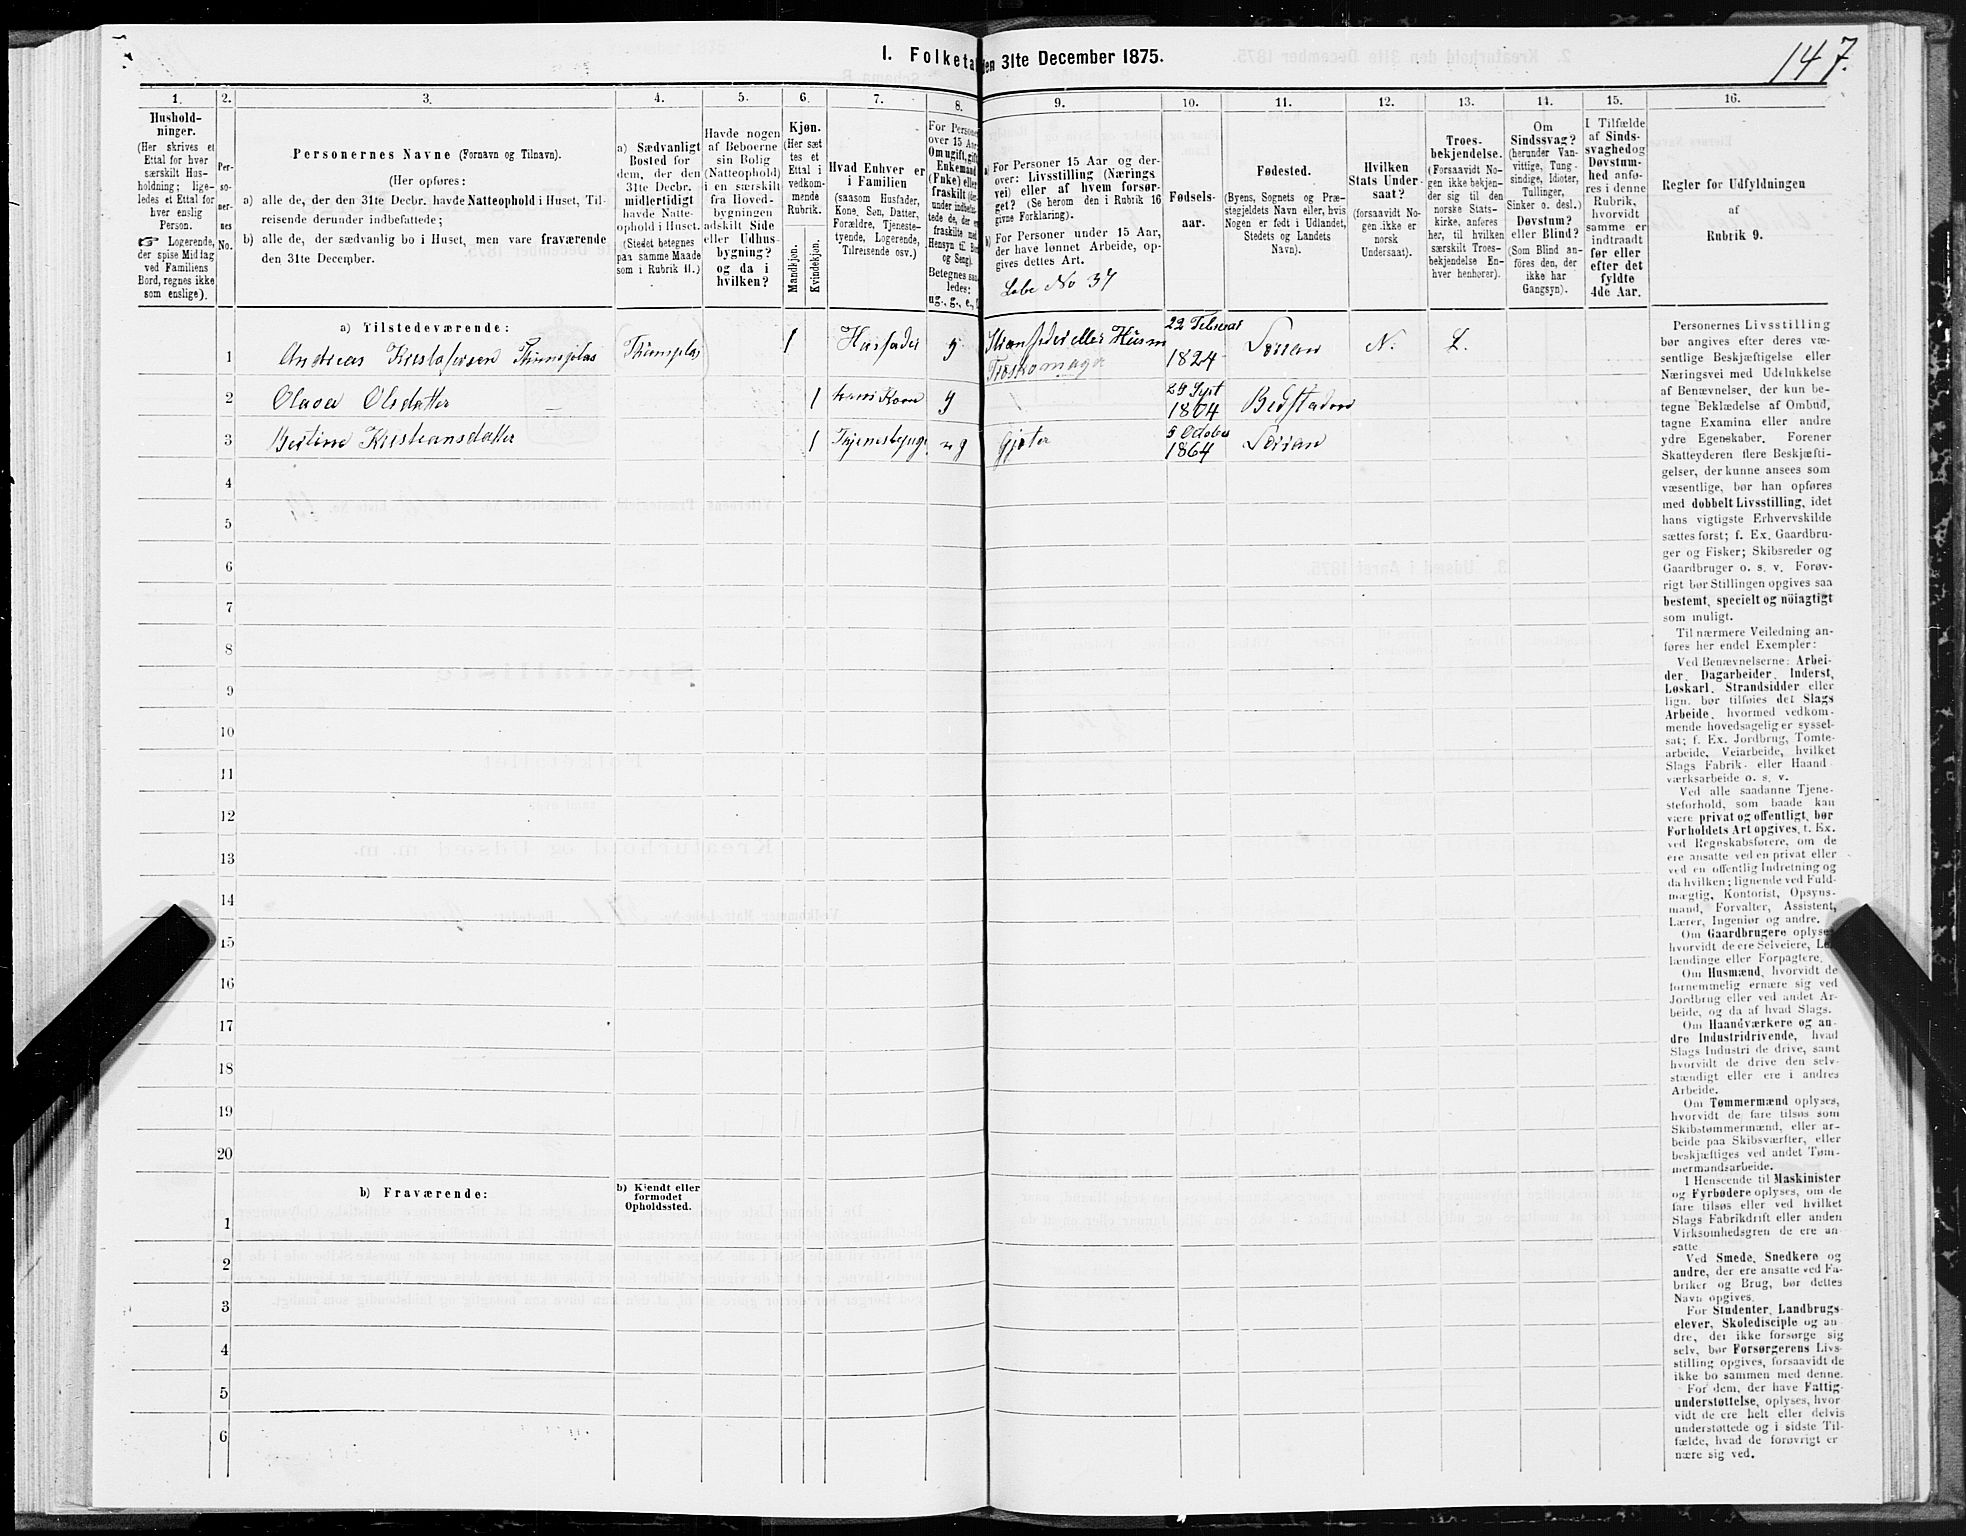 I. Folketa den 31te December 1875.
147.
1.
2.
3.
4.
5.
6.
7.
8.
9.
10.
11.
12.
13.
14.
15.
16.
Hushold-
ninger.
(Her skrives et
Ettal for hver
særskilt Hus-
holdning; lige-
ledes et Ettal for
hver enslig
Person.
☞ Logerende,
der spise Middag
ved Familiens
Bord, regnes ikke
som enslige).
Per-
so-
ner-
nes
No.
Personernes Navne (Fornavn og Tilnavn).
(Her opføres:
a) alle de, der den 31te Decbr. havde Natteophold i Huset, Til-
reisende derunder indbefattede;
b) alle de, der sædvanlig bo i Huset, men vare fraværende
den 31te December.
a) Sædvanligt
Bosted for
dem, der den
31te Decbr.
midlertidigt
havde Natte-
ophold i Huset.
(Stedet betegnes
paa samme Maade
som i Rubrik 11.)
Havde nogen
af Beboerne
sin Bolig
(Natteophold)
i en særskilt
fra Hoved-
bygningen
adskilt Side
eller Udhus-
bygning?
og da i
hvilken?
Kjøn.
(Her sæt
tes et
Ettal i
vedkom-
mende
Rubrik.
Mandkjøn.
Kvindekjøn.
Hvad Enhver er
i Familien
(saasom Husfader,
Kone, Søn, Datter,
Forældre, Tjeneste-
tyende, Logerende,
Tilreisende osv.)
For Personer
over 15 Aar:
Om ugift, gift,
Enkemand
(Enke) eller
fraskilt (der-
under indbefat-
tede de, der ere
fraskilte med
Hensyn til Bord
og Seng).
Betegnes saa-
ledes:
ug., g., e.,
a) For Personer 15 Aar og der-
over: Livsstilling (Nærings
vei) eller af hvem forsør-
get? (Se herom den i Rubrik 16
givne Forklaring).
b) For Personer under 15 Aar,
der have lønnet Arbeide, op-
gives dettes Art.
Løbe No 34
Fødsels-
aar.
Fødested.
(Byens, Sognets og Præ-
stegjeldets Navn eller, hvis
Nogen er født i Udlandet,
Stedets og Landets
Navn).
Hvilken
Stats Under-
saat?
(forsaavidt No-
gen ikke er
norsk
Undersaat).
Troes-
bekjendelse.
(Forsaavidt No-
gen ikke bekjen-
der sig til den
norske Stats-
kirke, anføres
her, til hvilken
særskilt Troes-
bekjendelse En-
hver henhører).
Om
Sindssvag?
(herunder Van-
vittige, Tung-
sindige, Idioter,
Tullinger,
Sinker o. desl.)
Døvstum?
eller Blind?
(Som Blind an-
føres den, der
ikke har
Gangsyn).
I Tilfælde
af Sinds-
svaghed og
Døvstum-
hed anfø-
res i denne
Rubrik,
hvorvidt
samme er
indtraadt
før eller
efter det
fyldte
4de Aar.
Regler for Udfyldningen
af
Rubrik 9.
a) Tilstedeværende:
1 Andreas Kristofersen 1 Husfader g 22 1824 N. L.
2 Olava Olsdatter 1 hans Kone g 1804
3 Kristiansdatter 1 ug Gjeter 5 October 1864
4
5
6
7
8
9
10
11
12
13
14
15
16
17
18
19
20
b) Fraværende:
b) Kjendt eller
formodet
Opholdssted.
1
2
3
4
5
6
Personernes Livsstilling
bør angives efter deres væ-
sentlige Beskjæftigelse eller
Næringsvei med Udelukkelse
af Benævnelser, der kun be-
tegne Beklædelse af Ombud,
tagne Examina eller andre
ydre Egenskaber. Forener
Skatteyderen flere Beskjæfti-
gelser, der kunne ansees som
væsentlige, bør han opføres
med dobbelt Livsstilling, idet
hans vigtigste Erhvervskilde
sættes først; f. Ex. Gaardbru-
ger og Fisker; Skibsreder og
Gaardbruger o. s. v. Forøv-
rigt bør Stillingen opgives saa
bestemt, specielt og nöiagtigt
som muligt.
Til nærmere Veiledning an-
føres her endel Exempler:
Ved Benævnelserne: Arbei-
der, Dagarbeider, Inderst,
Løskarl, Strandsidder eller
lign. bør tilføies det Slags
Arbeide, hvormed vedkom-
mende hovedsagelig er syssel-
sat; f. Ex. Jordbrug, Tomte-
arbeide, Veiarbeide, hvilket
Slags Fabrik- eller Haand
værksarbeide o. s. v.
Ved alle saadanne Tjene-
steforhold, som baade kan
være privat og offentligt, bør
Forholdets Art opgives, t. Ex.
ved Regnskabsførere, om de
ere ansatte ved en privat eller
ved en offentlig Indretning og
da hvilken; lignende ved Fuld-
mægtig, Kontorist, Opsyns-
mand, Forvalter, Assistent,
Lærer, Ingeniør og andre.
Om Gaardbrugere oplyses,
hvorvidt de ere Selveiere, Lei-
lændinge eller Forpagtere.
Om Husmænd, hvorvidt de
fornemmelig ernære sig ved
Jordbrug eller ved andet Ar-
beide, og da af hvad Slags.
Om Haandværkere og an-
dre Industridrivende, hvad
Slags Industri de drive, samt
hvorvidt de drive den selv-
stændigt eller ere i andres
Arbeide.
Om Tømmermænd oplyses,
hvorvidt de fare tilsøs som
Skibstømmermænd, eller ar-
beide paa Skibsværfter, eller
beskjæftiges ved andet Tøm-
mermandsarbeide.
I Henseende til Maskinister
og Fyrbødere oplyses, om de
fare tilsøs eller ved hvilket
Slags Fabrikdrift eller anden
Virksomhedsgren de ere an-
satte.
Ved Smede, Snedkere og
andre, der ere ansatte ved Fa-
briker og Brug, bør dettes
Navn opgives.
For Studenter, Landbrugs-
elever, Skoledisciple og an-
dre, der ikke forsørge sig
selv, bør Forsørgerens Livs-
stilling opgives, forsaavidt de
ikke bo sammen med denne.
For dem, der have Fattig-
understøttelse, oplyses, hvor
vidt de ere helt eller delvis
understøttede og i sidste Til-
fælde, hvad de forøvrigt er
nære sig ved.